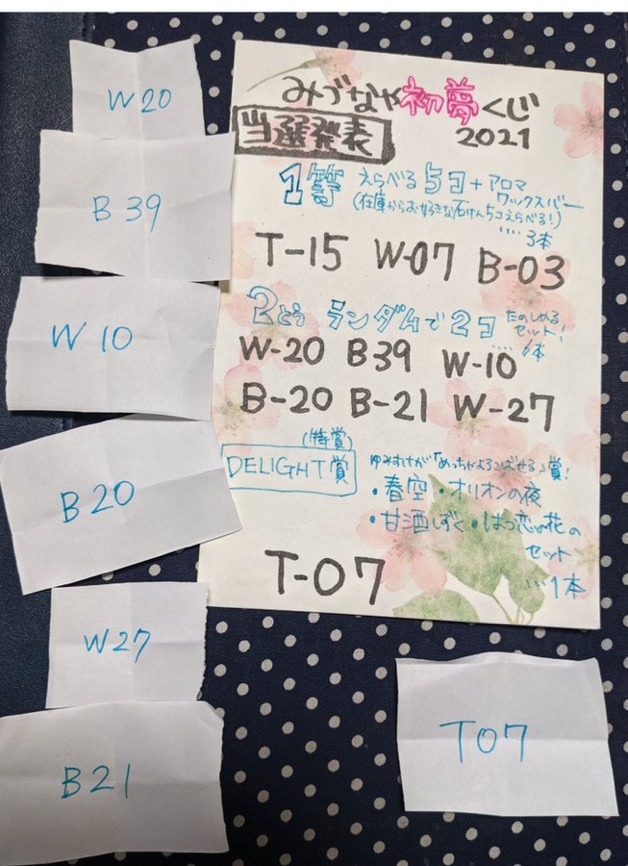 みづなや初夢くじ
2021
当選発表
1等 えらべる5コ+アロマ
ワックスバー
(在庫からお好きな石けん5コえらべる!)
....3本
T-15 W-07 B-03
2とう ランダムで2コ たのしめる
セット!
....6本
W-20 B39 W-10
B-20 B-21 W-27
(特賞)
DELIGHT賞 ゆみすけが「めっちゃよろこばせる」賞!
・春空・オリオンの夜
・甘酒しずく・はつ恋の花の
セット
...1本
T-07
W20
B39
W10
B20
W27
B21
T07